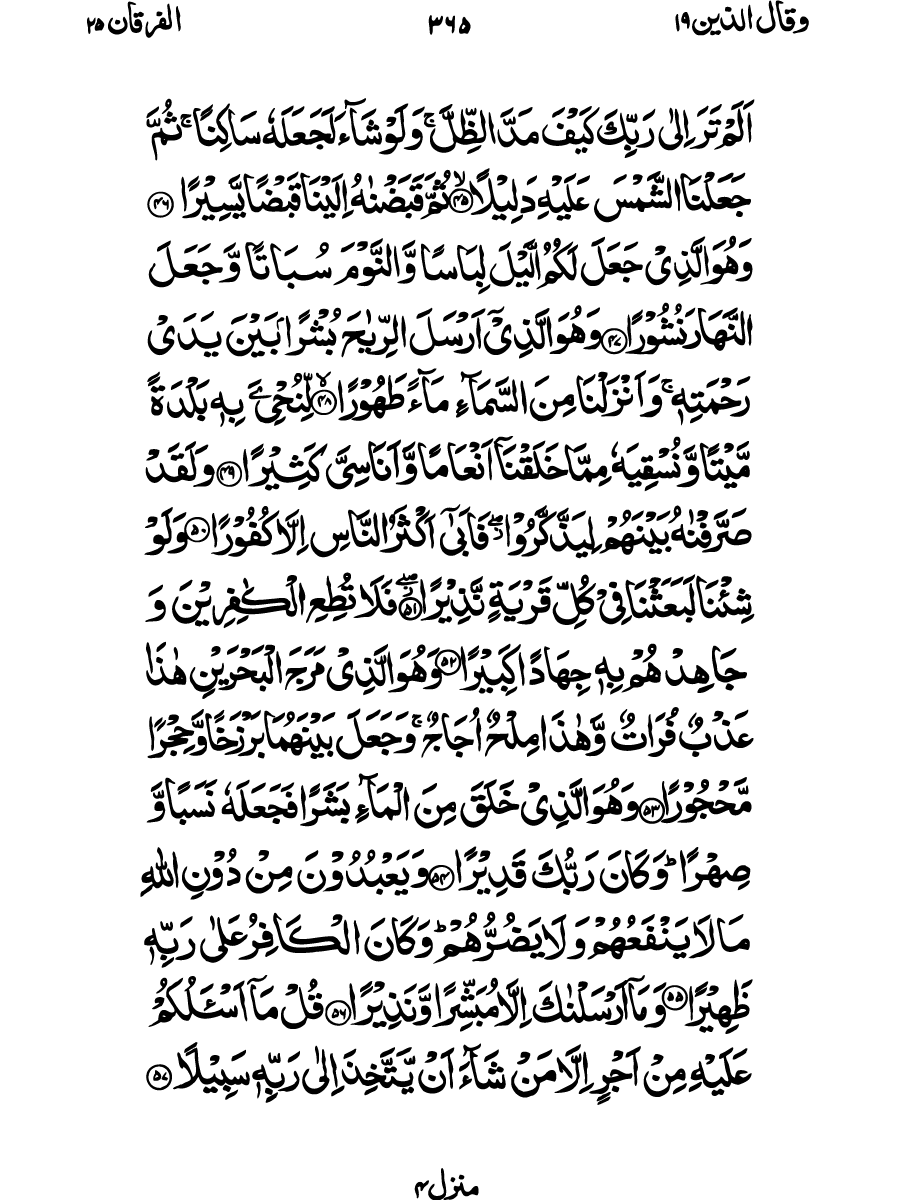 وقال الذین ۱۹ ۳۶۵ الفرقان ۲۵
اَلَمْ تَرَ اِلٰى رَبِّكَ كَيْفَ مَدَّ الظِّلَّ ۚ وَلَوْ شَآءَ لَجَعَلَهٗ سَاكِنًا ۚ ثُمَّ
جَعَلْنَا الشَّمْسَ عَلَيْهِ دَلِيْلًا ۙ﴿۴۵﴾ ثُمَّ قَبَضْنٰهُ اِلَيْنَا قَبْضًا يَّسِيْرًا ﴿۴۶﴾
وَهُوَ الَّذِىْ جَعَلَ لَكُمُ الَّيْلَ لِبَاسًا وَّالنَّوْمَ سُبَاتًا وَّجَعَلَ
النَّهَارَ نُشُوْرًا ﴿۴۷﴾ وَهُوَ الَّذِىْۤ اَرْسَلَ الرِّيٰحَ بُشْرًۢا بَيْنَ يَدَىْ
رَحْمَتِهٖ ۚ وَاَنْزَلْنَا مِنَ السَّمَآءِ مَآءً طَهُوْرًا ۙ﴿۴۸﴾ لِّنُحْیِۦَ بِهٖ بَلْدَةً
مَّيْتًا وَّنُسْقِيَهٗ مِمَّا خَلَقْنَاۤ اَنْعَامًا وَّاَنَاسِىَّ كَثِيْرًا ﴿۴۹﴾ وَلَقَدْ
صَرَّفْنٰهُ بَيْنَهُمْ لِيَذَّكَّرُوْا ۖ فَاَبٰٓى اَكْثَرُ النَّاسِ اِلَّا كُفُوْرًا ﴿۵۰﴾ وَلَوْ
شِئْنَا لَبَعَثْنَا فِىْ كُلِّ قَرْيَةٍ نَّذِيْرًا ۖ﴿۵۱﴾ فَلَا تُطِعِ الْكٰفِرِيْنَ وَ
جَاهِدْهُمْ بِهٖ جِهَادًا كَبِيْرًا ﴿۵۲﴾ وَهُوَ الَّذِىْ مَرَجَ الْبَحْرَيْنِ هٰذَا
عَذْبٌ فُرَاتٌ وَّهٰذَا مِلْحٌ اُجَاجٌ ۚ وَجَعَلَ بَيْنَهُمَا بَرْزَخًا وَّحِجْرًا
مَّحْجُوْرًا ﴿۵۳﴾ وَهُوَ الَّذِىْ خَلَقَ مِنَ الْمَآءِ بَشَرًا فَجَعَلَهٗ نَسَبًا وَّ
صِهْرًا ؕ وَكَانَ رَبُّكَ قَدِيْرًا ﴿۵۴﴾ وَيَعْبُدُوْنَ مِنْ دُوْنِ اللّٰهِ
مَا لَا يَنْفَعُهُمْ وَلَا يَضُرُّهُمْ ؕ وَكَانَ الْكَافِرُ عَلٰى رَبِّهٖ
ظَهِيْرًا ﴿۵۵﴾ وَمَاۤ اَرْسَلْنٰكَ اِلَّا مُبَشِّرًا وَّنَذِيْرًا ﴿۵۶﴾ قُلْ مَاۤ اَسْـَٔلُكُمْ
عَلَيْهِ مِنْ اَجْرٍ اِلَّا مَنْ شَآءَ اَنْ يَّتَّخِذَ اِلٰى رَبِّهٖ سَبِيْلًا ﴿۵۷﴾
منزل ۴